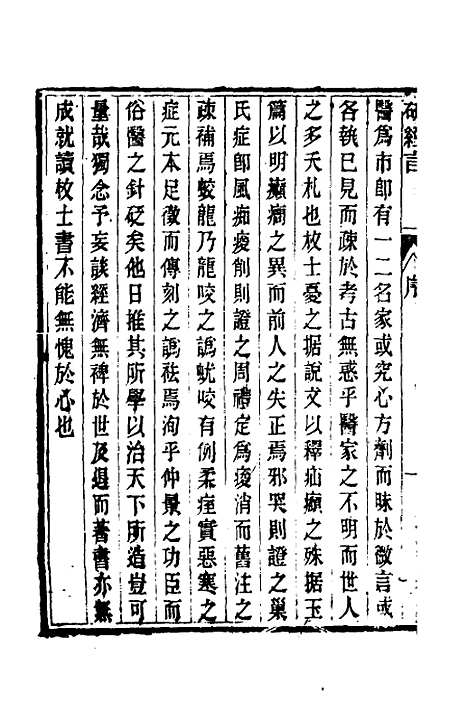 研經言
序
一
醫爲市即有一二名家或究心方劑而昧於微言或
各執已見而疎於考古無惑乎醫家之不明而世人
之多夭札也枚士憂之据說文以釋疝㿗之殊据玉
篇以明癲癎之異而前人之失正焉邪哭則證之巢
氏症卽風痴痠削則證之周禮定爲痠消而舊注之
疎補焉蛟龍乃龍咬之譌蚘咬有例柔痓實惡寒之
症元本足徵而傳刻之譌祛焉洵乎仲景之功臣而
俗醫之針砭矣他日推其所學以治天下所造豈可
量哉獨念予妄談經濟無裨於世及退而著書亦無
成就讀枚士書不能無愧於心也